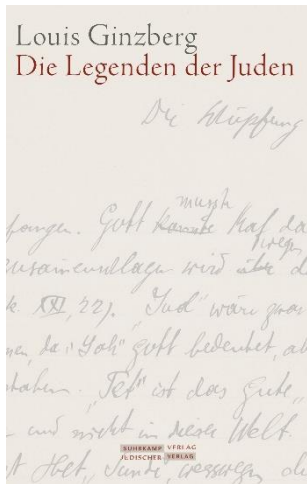 Louis Ginzberg
Die Legenden der Juden
Die Schöpfung
musste
Gott konnte
wegen
zusammenschlagen wird über
XXI, 22). "Jud" wäre zwar
da "Joh" Gott bedeutet,
"Tet" ist das Gute,
und nicht in dieser Welt.
Sünde,
SUHRKAMP VERLAG
JÜDISCHER VERLAG